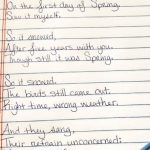 On the first day of Spring.
Saw it myself.
So it snowed,
After five years with you.
Though still it was Spring.
So it snowed.
The birds still came out.
Right time, wrong weather.
And they sang,
Their refrain unconcerned: